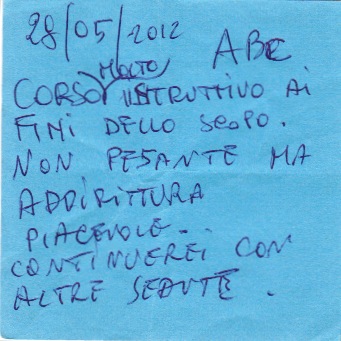 28/05/2012 ABC
CORSO MOLTO ISTRUTTIVO AI
FINI DELLO SCOPO.
NON PESANTE MA
ADDIRITTURA
PIACEVOLE.
CONTINUEREI CON
ALTRE SEDUTE.